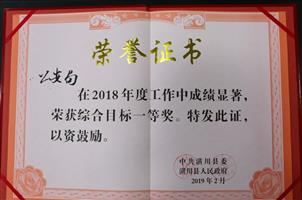 荣誉证书
公安局
在2018年度工作中成绩显著，
荣获综合目标一等奖。特发此证，
以资鼓励。
中共潢川县委
潢川县人民政府
2019年2月